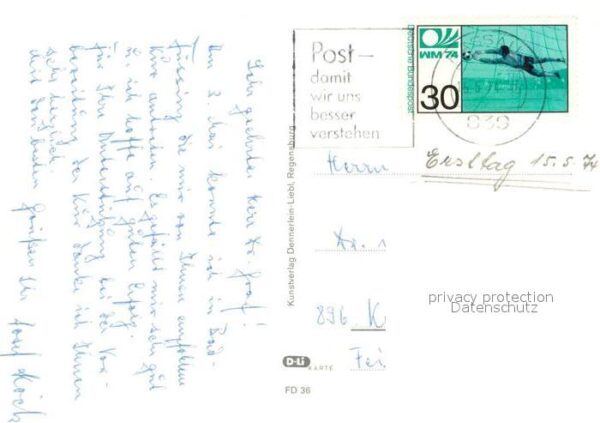 Sehr geehrter Herr Dr. Graf!
Am 3. Mai konnte ich in Bad-
Füssing die mir von Ihnen empfohlene
Kur antreten. Es gefällt mir sehr gut
u. ich hoffe auf guten Erfolg.
Für Ihre Unterstützung bei der Vor-
bereitung der Kur danke ich Ihnen
sehr herzlich
mit den besten Grüßen Ihr Josef
Kunstverlag Dennerlein-Liebl, Regensburg
D-Li
KARTE
FD 36
Post –
damit
wir uns
besser
verstehen
WM '74
Deutsche Bundespost
30
839
Ersttag 15.5.74
Herrn
Dr.
896 K
privacy protection
Datenschutz